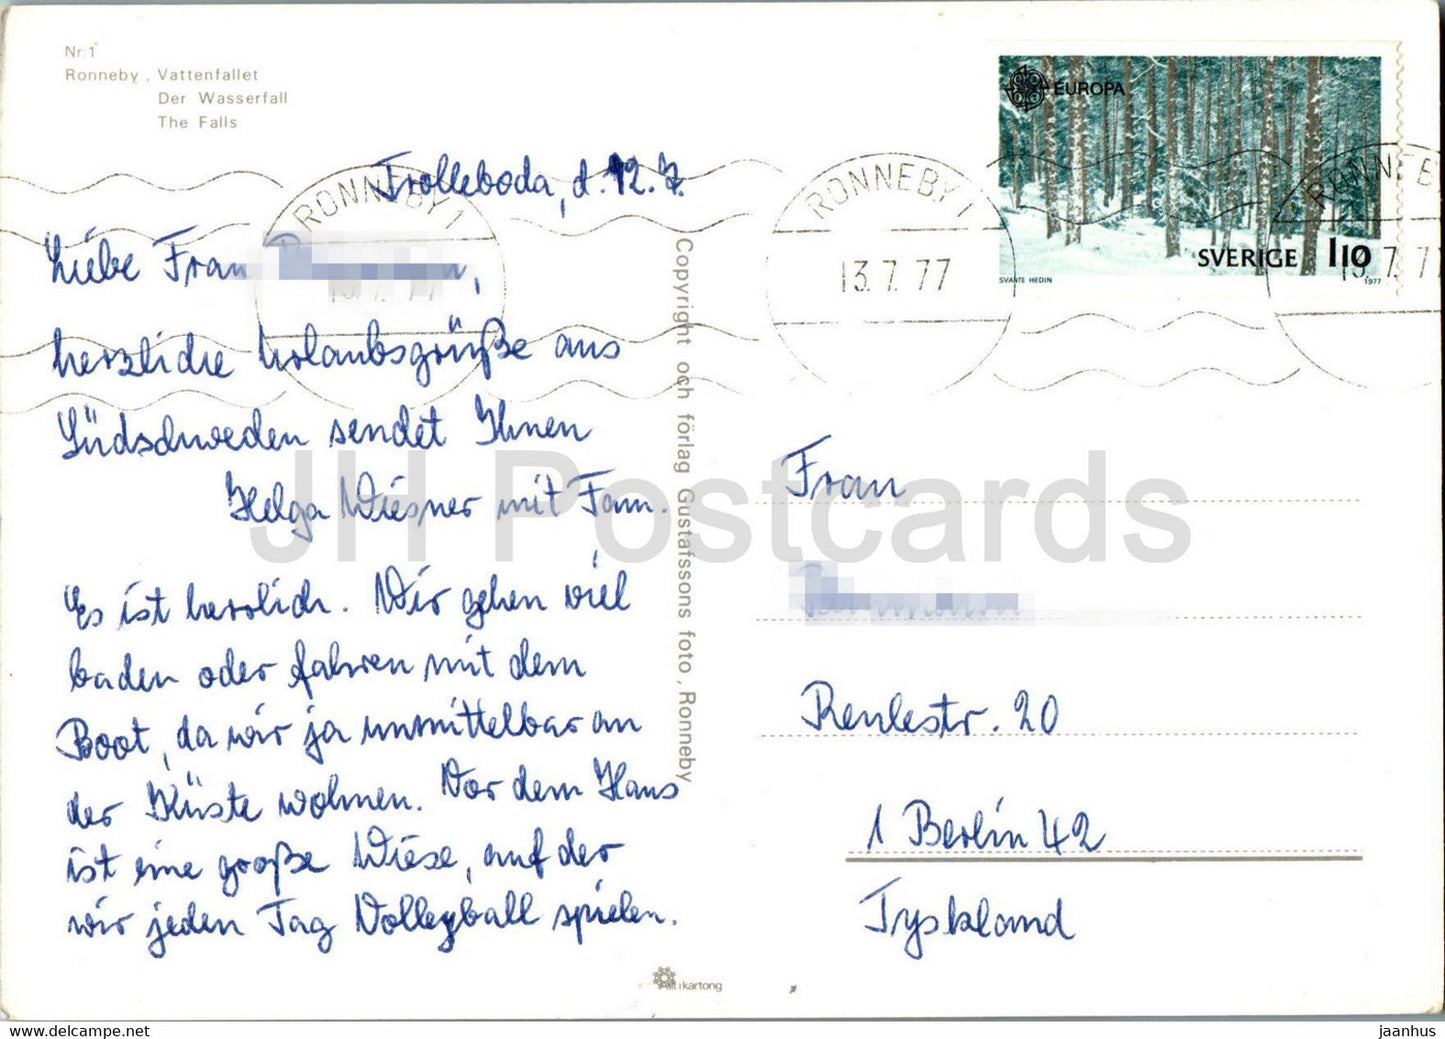 Nr:1
Ronneby , Vattenfallet
Der Wasserfall
The Falls
Trolleboda, d. 12.7.
Liebe Frau
herzliche Urlaubsgrüße aus
Südschweden sendet Ihnen
Helga Wiesner mit Fam.
Es ist herrlich. Wir gehen viel
baden oder fahren mit dem
Boot, da wir ja unmittelbar an
der Küste wohnen. Vor dem Haus
ist eine große Wiese, auf der
wir jeden Tag Volleyball spielen.
Copyright och förlag Gustafssons foto , Ronneby
kartong
RONNEBY 1
13.7.77
RONNEBY 1
13.7.77
RONNEBY
13.7.77
EUROPA
SVERIGE 110
SVANTE HEDIN 1977
Frau
Renlestr. 20
1 Berlin 42
Tyskland
JH Postcards
jaanhus
delcampe.net